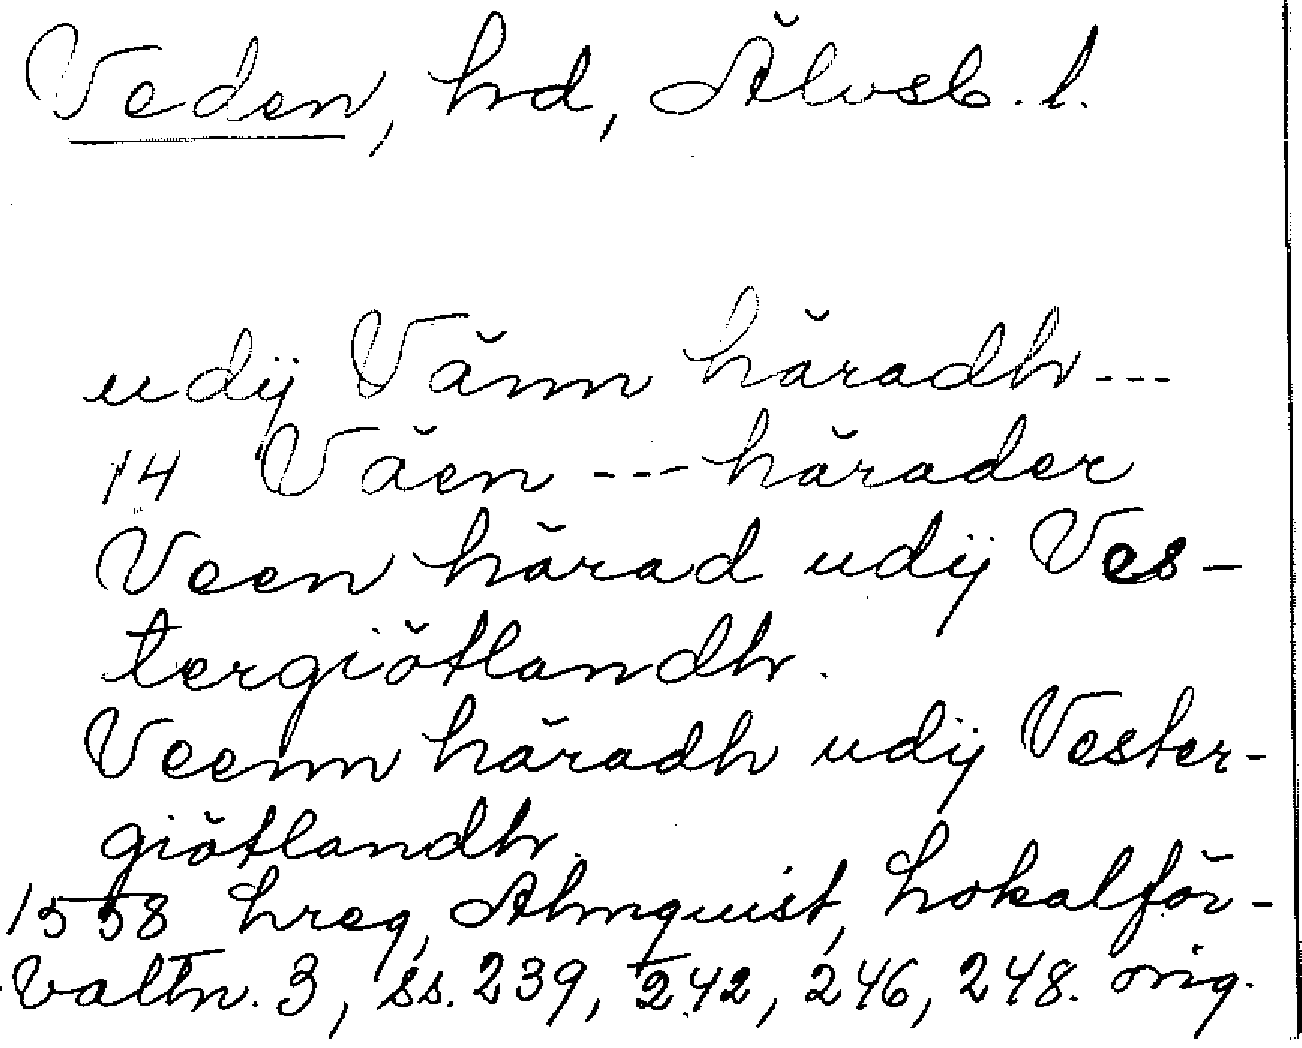 Veden, hrd, Älvsb. l.
udij Vänn häradh ---
14 Väen --- härader
Veen härad udij Ves-
tergiötlandh.
Veenn häradh udij Vester-
giötlandh.
1558 hreg, Almquist, Lokalför-
valtn. 3, ss. 239, 242, 246, 248. orig.